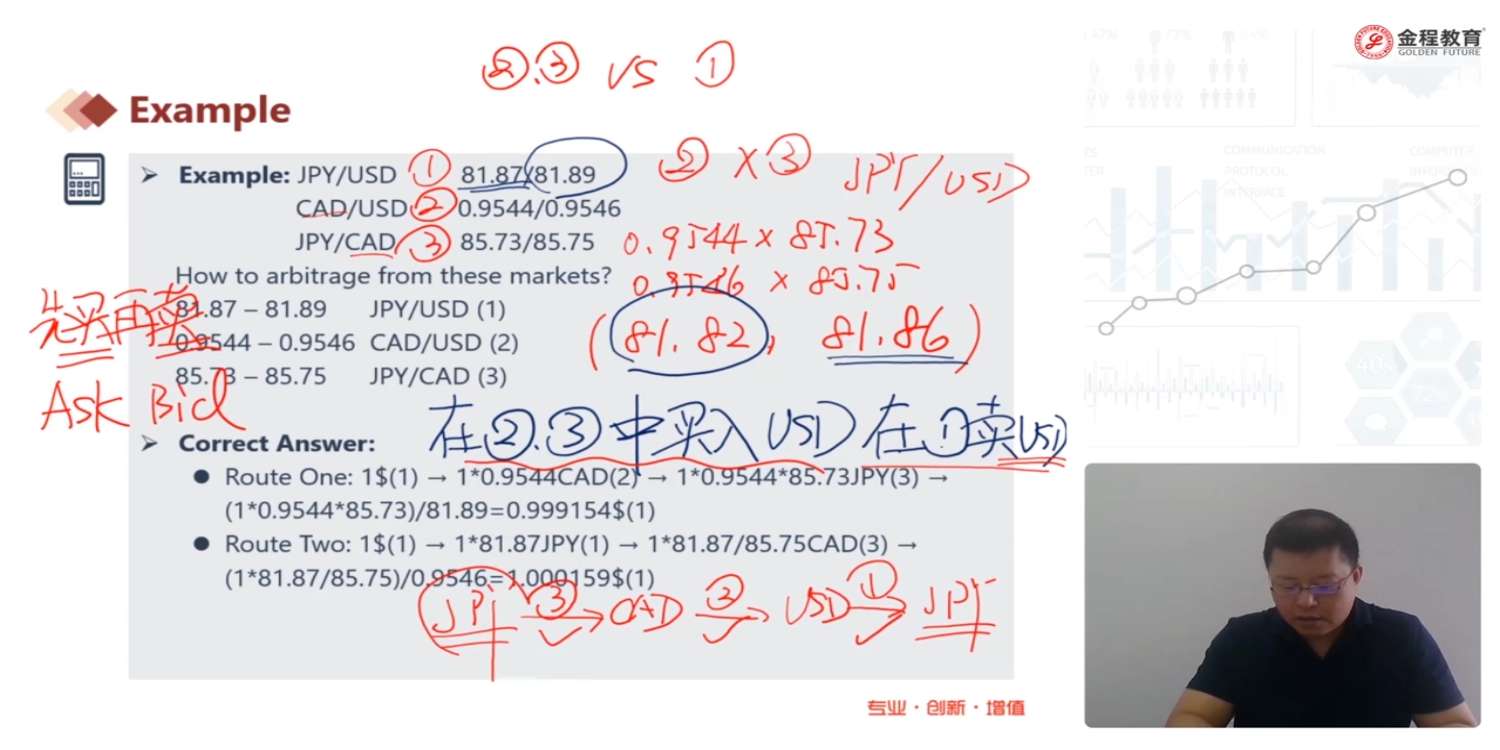 ②.③ VS ①
金程教育
GOLDEN FUTURE
Example
Example: JPY/USD ① 81.87/81.89
② X ③ JPY/USD
CAD/USD ② 0.9544/0.9546
JPY/CAD ③ 85.73/85.75
0.9544 × 85.73
How to arbitrage from these markets?
0.9546 × 85.75
先买再卖
81.87 – 81.89 JPY/USD (1)
0.9544 – 0.9546 CAD/USD (2)
(81.82, 81.86)
85.73 – 85.75 JPY/CAD (3)
Ask Bid
在②.③中买入USD在①卖USD
Correct Answer:
Route One: 1$(1) → 1*0.9544CAD(2) → 1*0.9544*85.73JPY(3) →
(1*0.9544*85.73)/81.89=0.999154$(1)
Route Two: 1$(1) → 1*81.87JPY(1) → 1*81.87/85.75CAD(3) →
(1*81.87/85.75)/0.9546=1.000159$(1)
JPY ③→ CAD ②→ USD ①→ JPY
专业·创新·增值